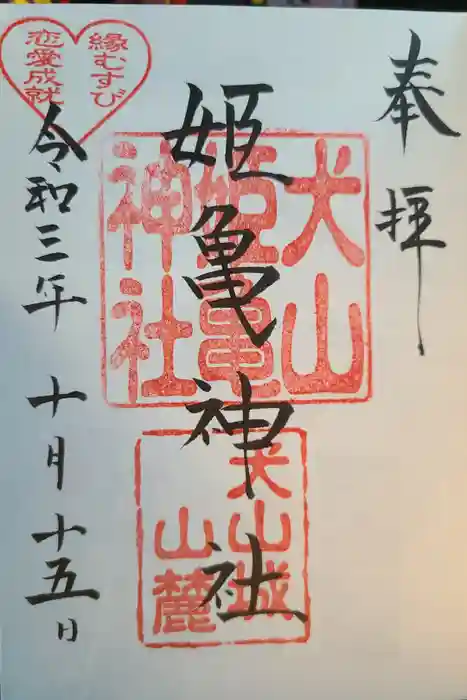 奉拝
犬山
姫亀
神社
姫亀神社
犬山城
山麓
縁むすび
恋愛成就
令和三年 十月十五日